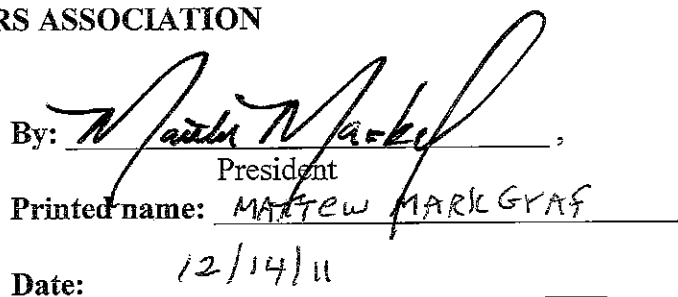 RS ASSOCIATION
By: Matthew Markg,
President
Printed name: MATTEW MARKGRAF
Date: 12/14/11